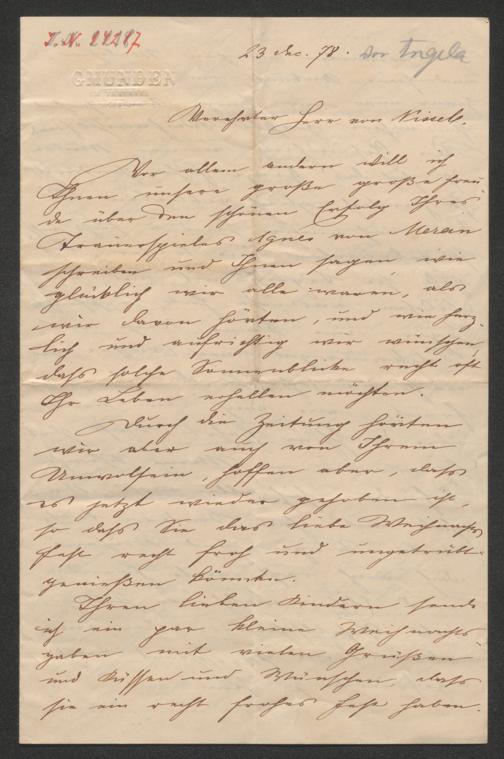 I. N. 24287
23 Dec. 78. von Angela
GMUNDEN
Verehrter Herr von Nissel.
Vor allem andern will ich
Ihnen unsere große große Freu
de über den schönen Erfolg Ihres
Trauerspieles Agnes von Meran
schreiben und Ihnen sagen, wie
glücklich wir alle waren, als
wir davon hörten, und wie herz-
lich und aufrichtig wir wünschen,
dass solche Sonnenblicke recht oft
Ihr Leben erhellen möchten.
Durch die Zeitung hörten
wir aber auch von Ihrem
Unwolsein, hoffen aber, dass
es jetzt wieder gehoben ist,
so dass Sie das liebe Weihnachts
fest recht froh und ungetrübt
genießen können.
Ihren lieben Kindern sende
ich ein par kleine Weihnachts
gaben mit vielen Grüßen
und Küssen und Wünschen, dass
sie ein recht frohes Fest haben.